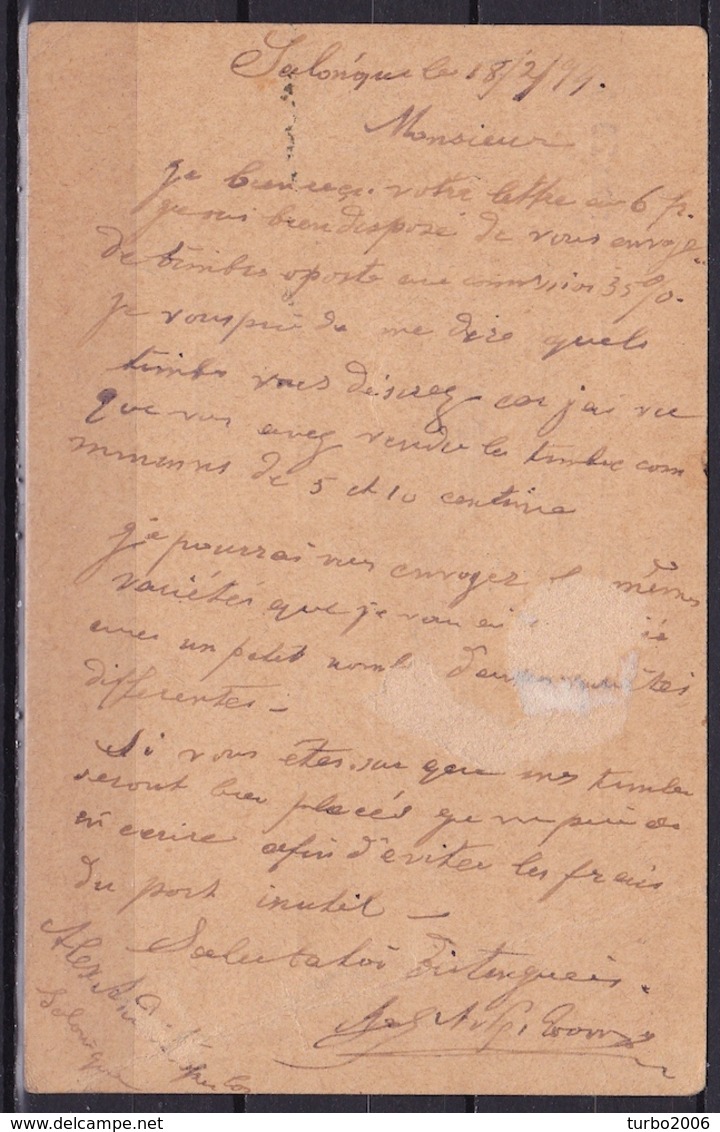 Salonique le 18/2/99.
Monsieur
je bien reçu votre lettre 6 fr.
je suis bien disposé de vous envoye
de timbres comission 35%.
je vous prie de me dire quels
timbre vous désirez car j'ai vu
que vous avez vendu le timbre com
munnes de 5 et 10 centime
je pourrai vous envoyez l mêmes
variétés que je vous ai
avec un petit nomb d'au tés
differentes –
Si vous êtes sur que mes timbre
seront bien placés je vs prie de
m ecrire afin d'eviter les frais
du port inutil –
Salutatiõ distinguées.
Alex
Salonique
turbo2006